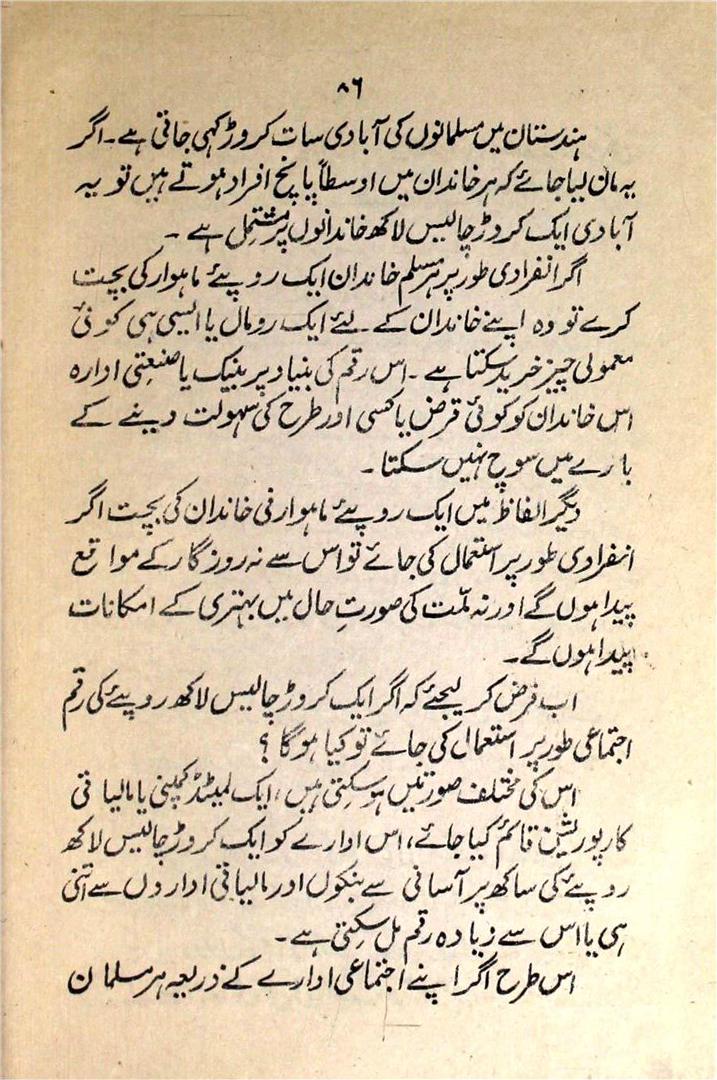 ۸۶
ہندستان میں مسلمانوں کی آبادی سات کروڑ کہی جاتی ہے۔ اگر
یہ مان لیا جائے کہ ہر خاندان میں اوسطاً پانچ افراد ہوتے ہیں تو یہ
آبادی ایک کروڑ چالیس لاکھ خاندانوں پر مشتمل ہے ۔
اگر انفرادی طور پر ہر مسلم خاندان ایک روپیئے ماہوار کی بچت
کرے تو وہ اپنے خاندان کے لئے ایک رومال یا ایسی ہی کوئی
معمولی چیز خرید سکتا ہے ۔ اس رقم کی بنیاد پر بنیک یا صنعتی ادارہ
اس خاندان کو کوئی قرض یا کسی اور طرح کی سہولت دینے کے
بارے میں سوچ نہیں سکتا ۔
دیگر الفاظ میں ایک روپیئے ماہوار فی خاندان کی بچت اگر
انفرادی طور پر استعمال کی جائے تو اس سے نہ روزگار کے مواقع
پیدا ہوں گے اور نہ ملّت کی صورتِ حال میں بہتری کے امکانات
پیدا ہوں گے۔
اب فرض کر لیجئے کہ اگر ایک کروڑ چالیس لاکھ روپیئے کی رقم
اجتماعی طور پر استعمال کی جائے تو کیا ہوگا ؟
اس کی مختلف صورتیں ہو سکتی ہیں، ایک لمیٹڈ کمپنی یا مالیاتی
کارپوریشن قائم کیا جائے، اس ادارے کو ایک کروڑ چالیس لاکھ
روپیئے کی ساکھ پر آسانی سے بنکوں اور مالیاتی اداروں سے اتنی
ہی یا اس سے زیادہ رقم مل سکتی ہے ۔
اس طرح اگر اپنے اجتماعی ادارے کے ذریعہ ہر مسلمان